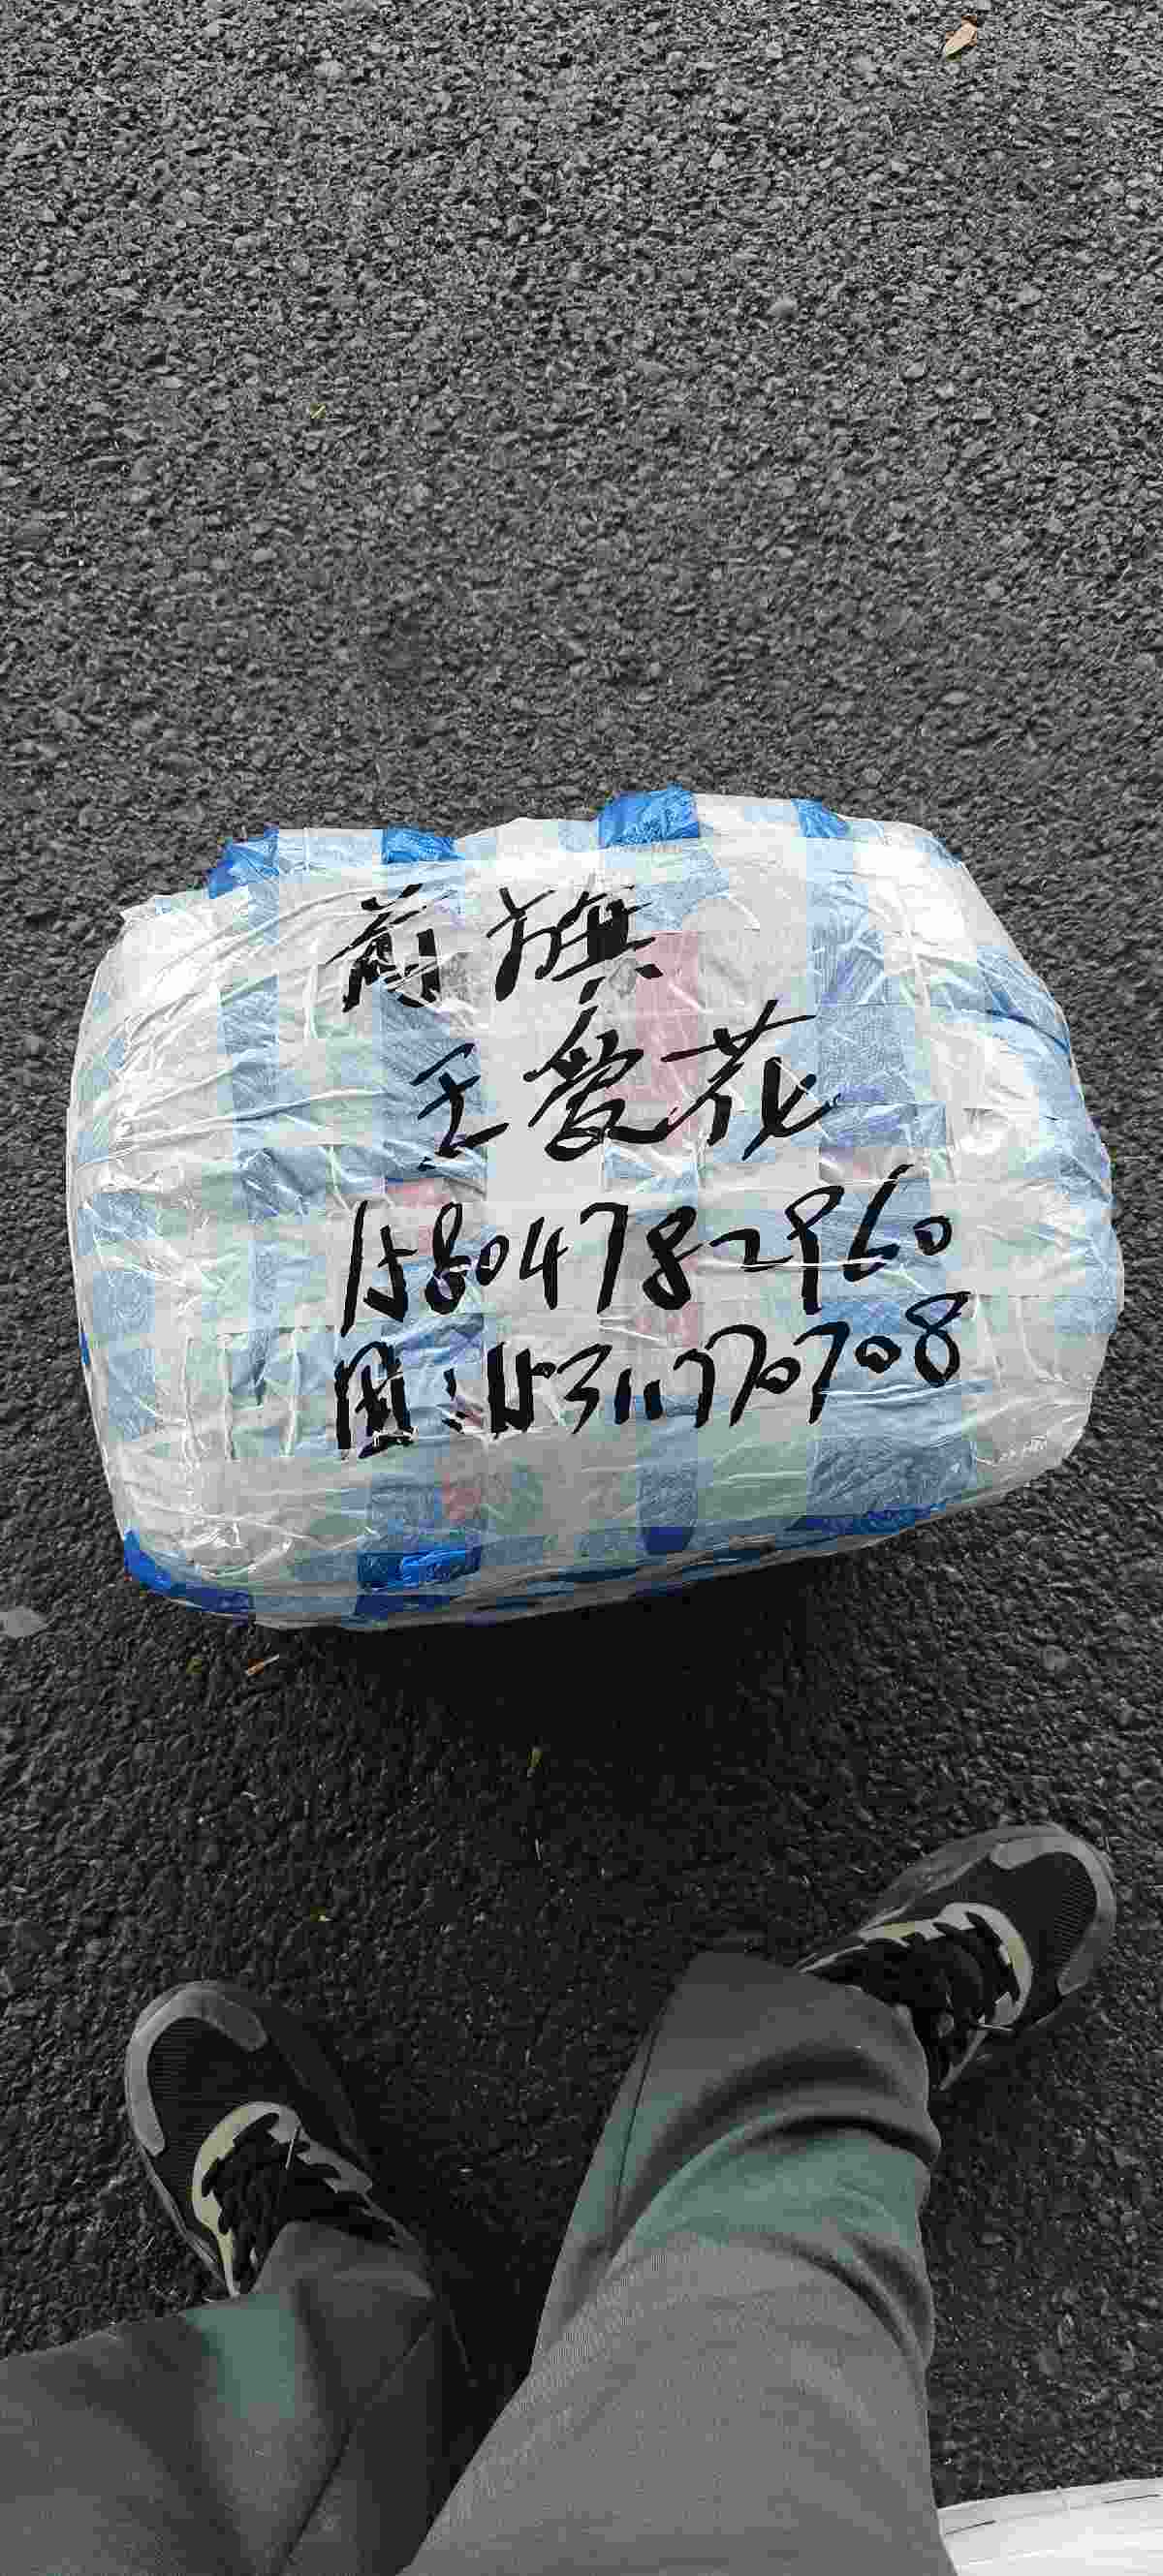 前旗
王爱花
15804782960
围:15311770708